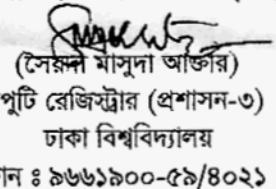 (সৈয়দা মাসুদা আক্তার)
পুটি রেজিস্ট্রার (প্রশাসন-৩)
ঢাকা বিশ্ববিদ্যালয়
ন ঃ ৯৬৬১৯০০-৫৯/৪০২১